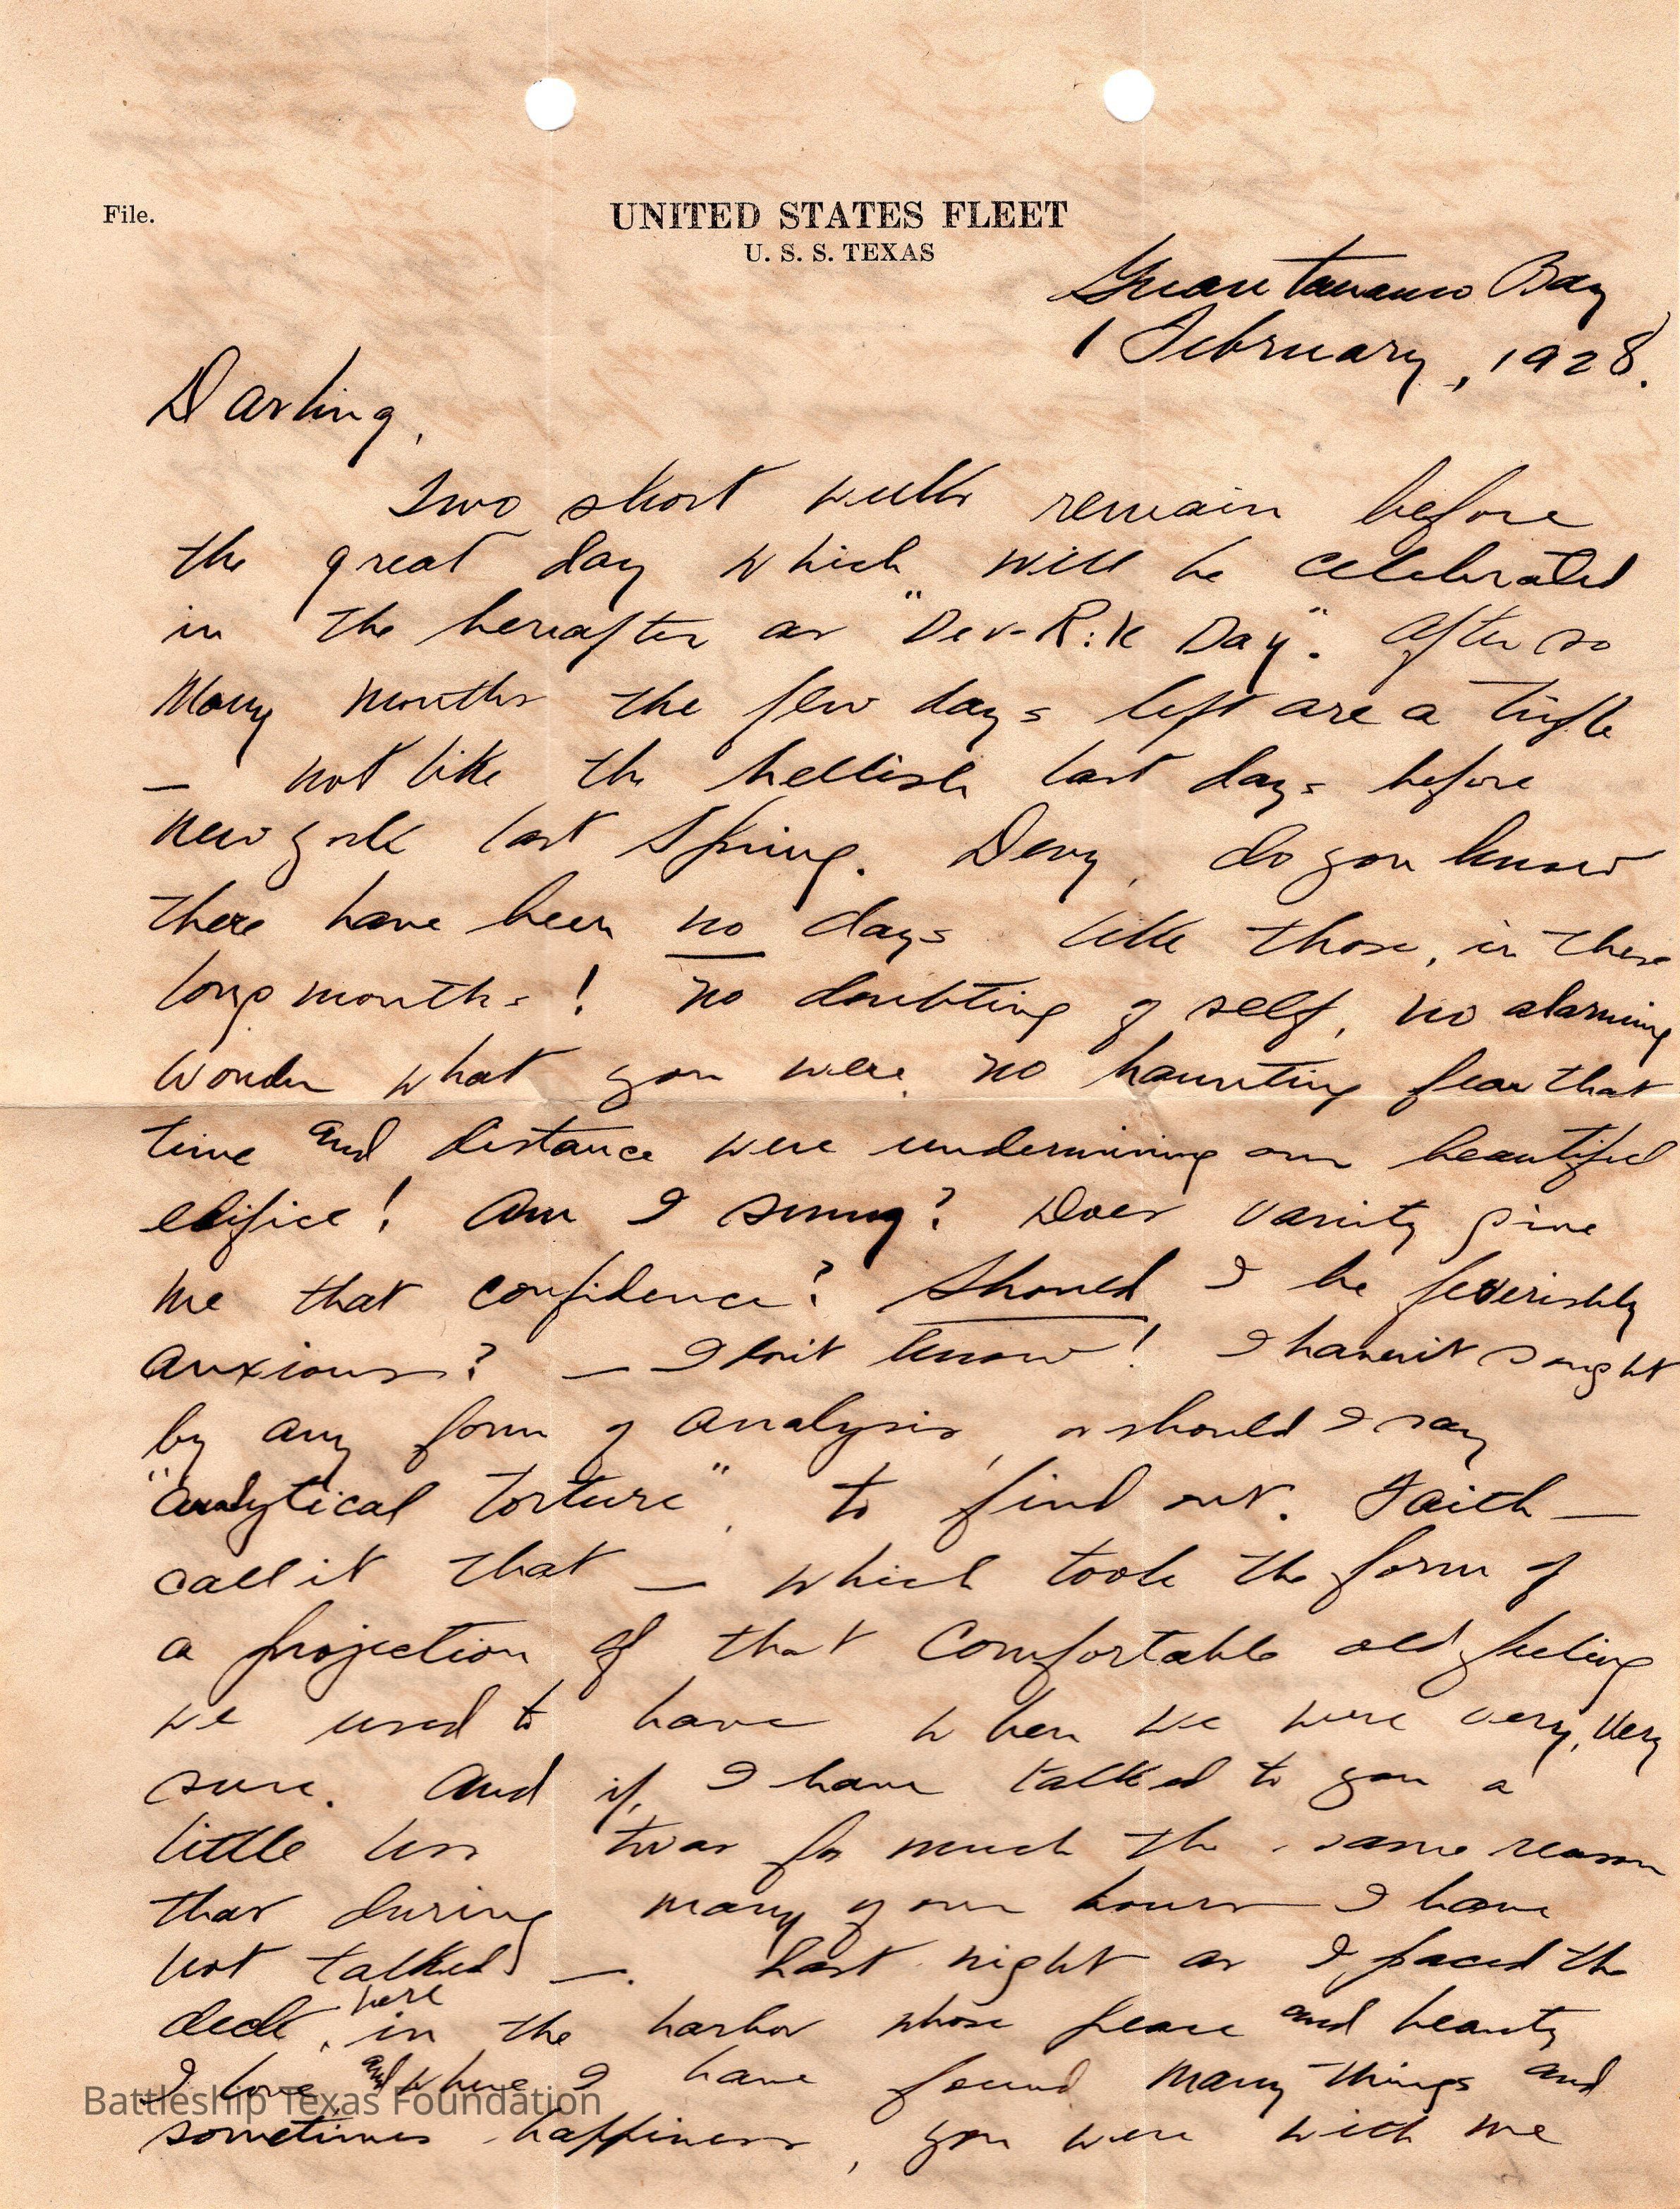 File.
UNITED STATES FLEET
U. S. S. TEXAS
Guantanamo Bay
1 February, 1928.
Darling,
Two short weeks remain before
the great day which will be celebrated
in the hereafter as "Dev-Rik Day". After so
many months the few days left are a trifle
— not like the hellish last days before
New York last Spring. Devy, do you know
there have been no days like those, in these
long months! No doubting of self, no alarming
wonder what you were, no haunting fear that
time and distance were undermining our beautiful
edifice! Am I smug? Does vanity give
me that confidence? Should I be feverishly
anxious? — I don't know! I haven't sought
by any form of analysis, or should I say
"analytical torture", to find out. Faith —
call it that — which took the form of
a projection of that comfortable old feeling
we used to have when we were very, very
sure. And if I have talked to you a
little less 'twas for much the same reason
that during many of our hours I have
not talked —. Last night as I paced the
deck, here in the harbor whose peace and beauty
I love and where I have found many things and
sometimes happiness, you were with me
Battleship Texas Foundation